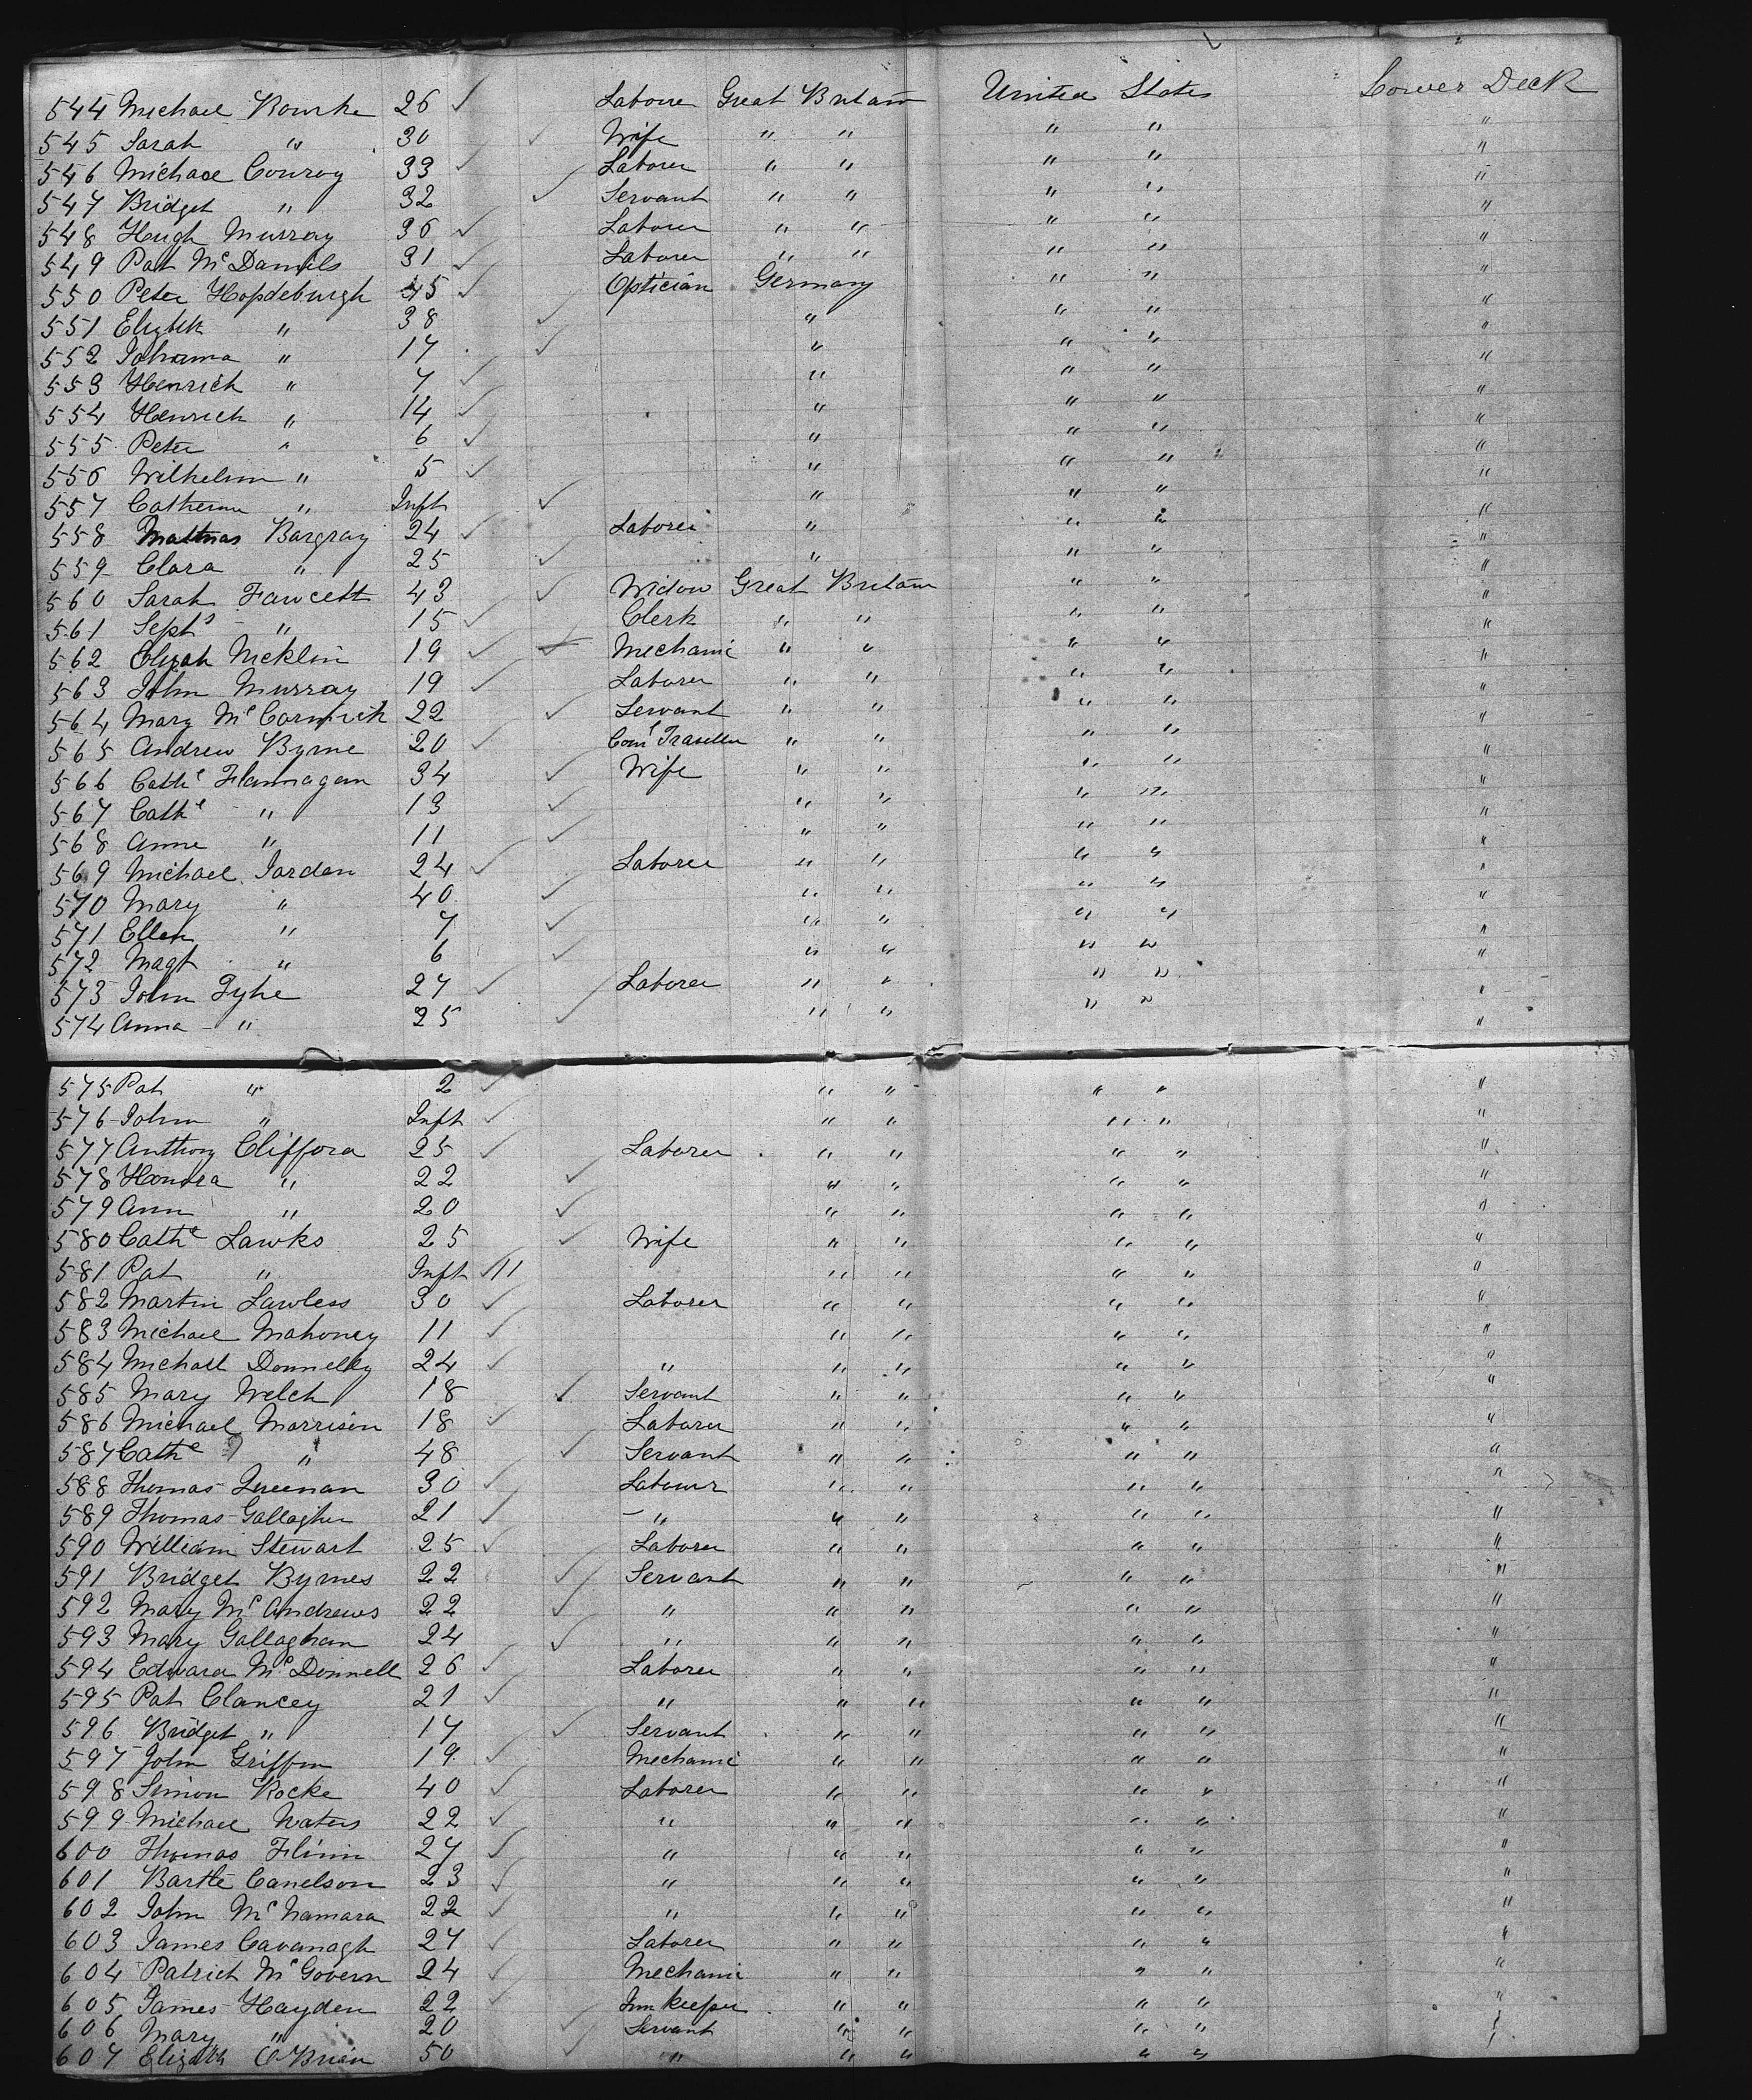 544 Michael Rourke 26 ✓ Laborer Great Britain United States Lower Deck
545 Sarah " 30 ✓ Wife " " " " "
546 Michael Conroy 33 ✓ Laborer " " " " "
547 Bridget " 32 ✓ Servant " " " " "
548 Hugh Murray 36 ✓ Laborer " " " " "
549 Pat McDaniels 31 ✓ Laborer " " " " "
550 Peter Hopdeburgh 45 ✓ Optician Germany " " "
551 Elizbth " 38 ✓ " " " "
552 Johanna " 17 ✓ " " " "
553 Henrich " 7 ✓ " " " "
554 Henrich " 14 ✓ " " " "
555 Peter " 6 ✓ " " " "
556 Wilhelm " 5 ✓ " " " "
557 Catherine " Inft ✓ " " " "
558 Mathias Bargray 24 ✓ Laborer " " " "
559 Clara " 25 ✓ " " " "
560 Sarah Fawcett 43 ✓ Widow Great Britain " " "
561 Septs " 15 ✓ Clerk " " " " "
562 Elijah Nicklin 19 ✓ Mechanic " " " " "
563 John Murray 19 ✓ Laborer " " " " "
564 Mary McCormick 22 ✓ Servant " " " " "
565 Andrew Byrne 20 ✓ Coml Traveller " " " " "
566 Cathe Flannagan 34 ✓ Wife " " " " "
567 Cathe " 13 ✓ " " " " "
568 Anne " 11 ✓ " " " " "
569 Michael Jordan 24 ✓ Laborer " " " " "
570 Mary " 40 ✓ " " " " "
571 Ellen " 7 ✓ " " " " "
572 Magt " 6 ✓ " " " " "
573 John Tyhe 27 ✓ Laborer " " " " "
574 Anna " 25 ✓ " " " " "
575 Pat " 2 ✓ " " " " "
576 John " Inft ✓ " " " " "
577 Anthony Clifford 25 ✓ Laborer " " " " "
578 Honora " 22 ✓ " " " " "
579 Ann " 20 ✓ " " " " "
580 Cathe Lawks 25 ✓ Wife " " " " "
581 Pat " Inft ✓ 11 " " " " "
582 Martin Lawless 30 ✓ Laborer " " " " "
583 Michael Mahoney 11 ✓ " " " " "
584 Michael Donnelly 24 ✓ " " " " " "
585 Mary Welch 18 ✓ Servant " " " " "
586 Michael Morrison 18 ✓ Laborer " " " " "
587 Cathe " 48 ✓ Servant " " " " "
588 Thomas Queenan 30 ✓ Labourer " " " " "
589 Thomas Gallagher 21 ✓ " " " " " "
590 William Stewart 25 ✓ Laborer " " " " "
591 Bridget Byrnes 22 ✓ Servant " " " " "
592 Mary McAndrews 22 ✓ " " " " " "
593 Mary Gallaghan 24 ✓ " " " " " "
594 Edward McDonnell 26 ✓ Laborer " " " " "
595 Pat Clancey 21 ✓ " " " " " "
596 Bridget " 17 ✓ Servant " " " " "
597 John Griffin 19 ✓ Mechanic " " " " "
598 Simon Rocke 40 ✓ Laborer " " " " "
599 Michael Waters 22 ✓ " " " " " "
600 Thomas Flinn 27 ✓ " " " " " "
601 Bartle Canelson 23 ✓ " " " " " "
602 John McNamara 22 ✓ " " " " " "
603 James Cavanagh 27 ✓ Laborer " " " " "
604 Patrick McGovern 24 ✓ Mechanic " " " " "
605 James Hayden 22 ✓ Inn Keeper " " " " "
606 Mary " 20 ✓ Servant " " " " "
607 Elizabth O'Brien 50 ✓ " " " " " "